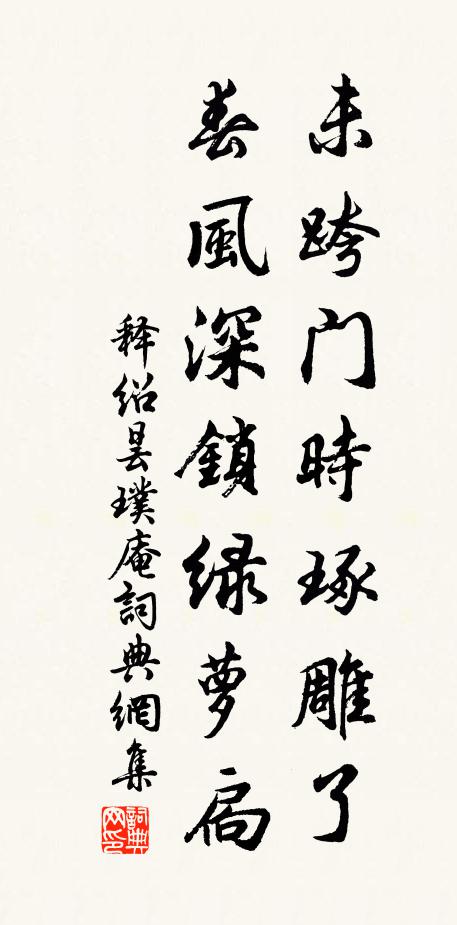 未跨门時琢雕了
春風深鎖绿萝扃
释绍昙璞庵詞典網集
詞典
网印